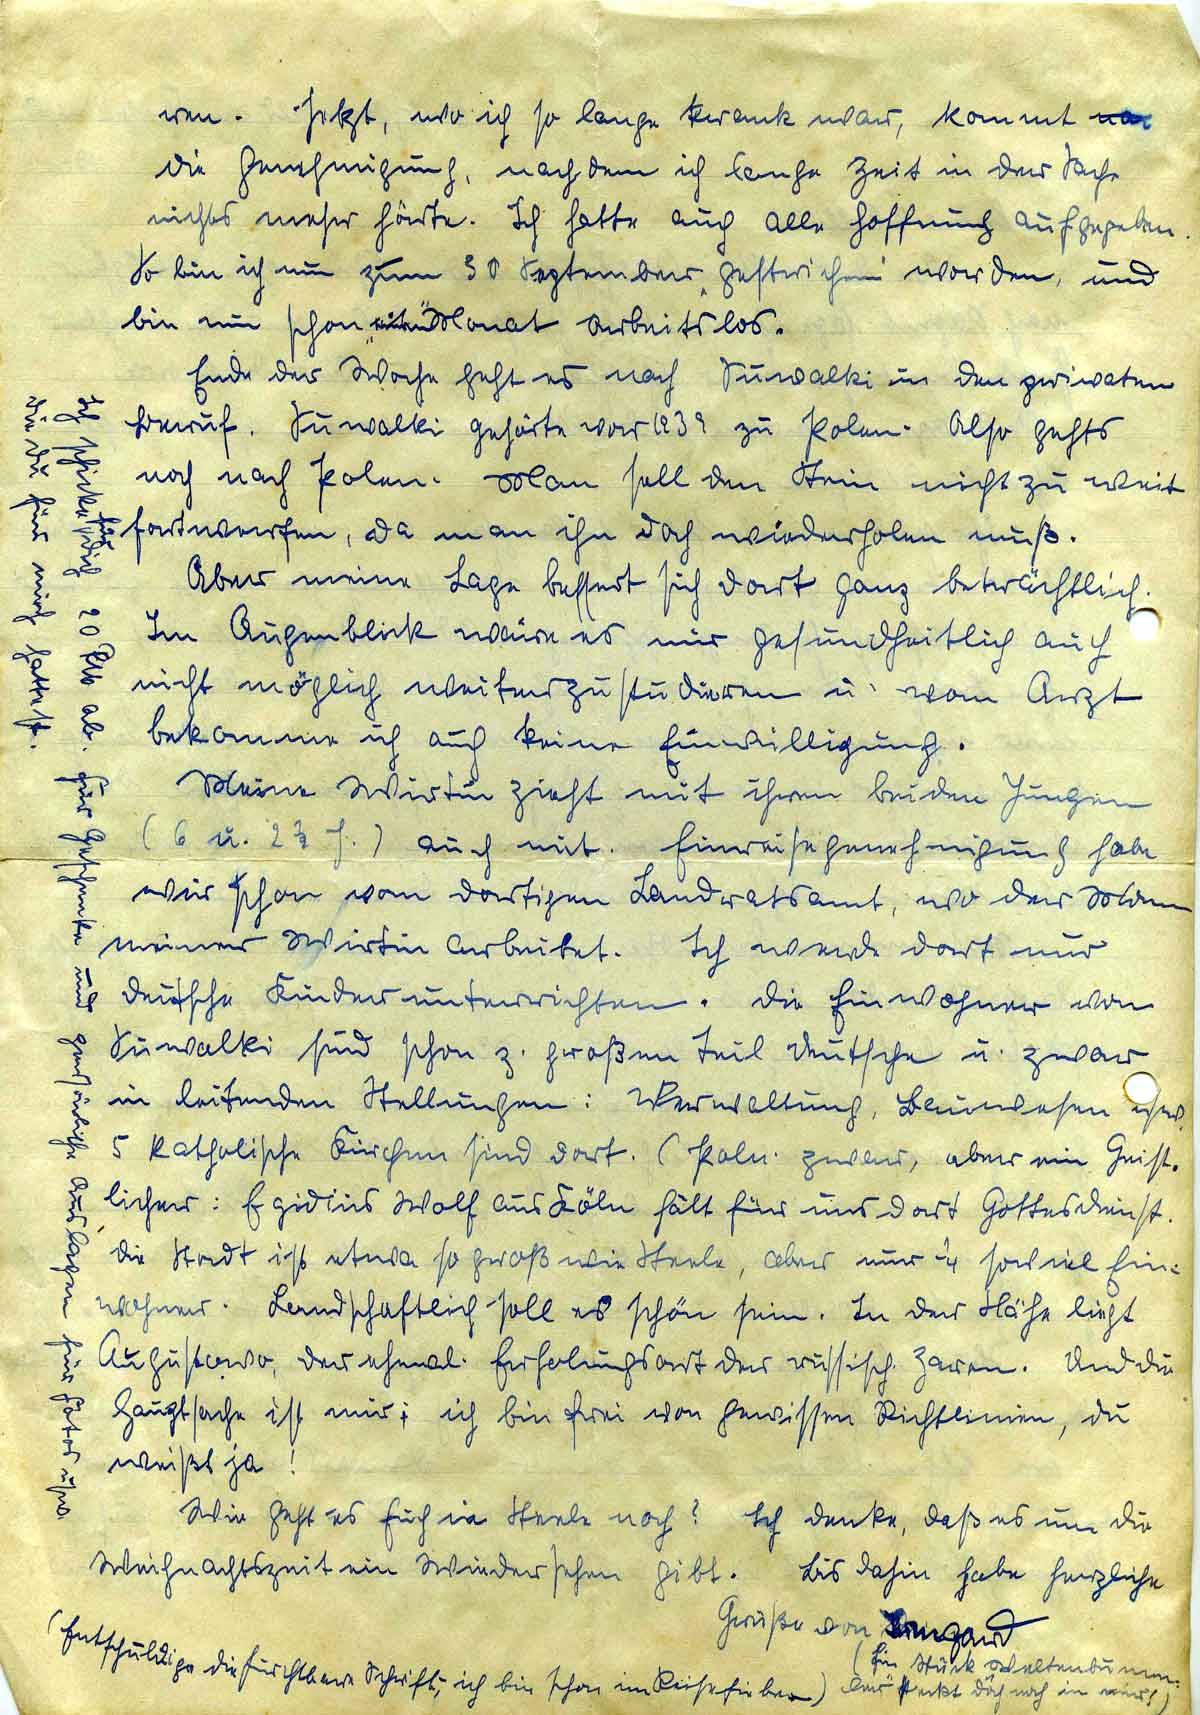 ren. Jetzt, wo ich so lange krank war, kommt
die Genehmigung, nachdem ich lange Zeit in der Sache
nichts mehr hörte. Ich hatte auch alle Hoffnung aufgegeben.
So bin ich nun zum 30 September "gestrichen" worden, und
bin nun schon einen Monat arbeitslos.
Ende der Woche geht es nach Suwalki in den privaten
Beruf. Suwalki gehörte vor 1939 zu Polen. Also gehts
noch nach Polen. Man soll den Stein nicht zu weit
fortwerfen, da man ihn doch wiederholen muß.
Aber meine Lage bessert sich dort ganz beträchtlich.
Im Augenblick wäre es mir gesundheitlich auch
nicht möglich weiterzustudieren u. vom Arzt
bekomme ich auch keine Einwilligung.
Meine Wirtin zieht mit ihren beiden Jungen
(6 u. 2½ J.) auch mit. Einreisegenehmigung habe
wir schon vom dortigen Landratsamt, wo der Mann
meiner Wirtin arbeitet. Ich werde dort nur
deutsche Kinder unterrichten. Die Einwohner von
Suwalki sind schon z. großen Teil Deutsche u. zwar
in leitenden Stellungen: Verwaltung, Bauwesen usw.
5 katholische Kirchen sind dort. (Poln. zwar, aber ein Geist-
licher: Egidius Wolf aus Köln hält für uns dort Gottesdienst.
Die Stadt ist etwa so groß wie Steele, aber nur ¼ soviel Ein-
wohner. Landschaftlich soll es schön sein. In der Nähe liegt
Augustowo, der ehemal. Erholungsort der russisch. Zaren. Und die
Hauptsache ist mir: ich bin frei von gewissen Richtlinien, du
weißt ja!
Wie geht es Euch in Steele noch? Ich denke, daß es um die
Weihnachtszeit ein Wiedersehen gibt. Bis dahin habe herzliche
Grüße von Irmgard
(Ein Stück Weltenbumm-
ler steckt doch noch in mir!)
(Entschuldige die furchtbare Schrift, ich bin schon im Reisefieber)
Ich schicke für dich 20 RM ab. Für Geschenke und persönliche Auslagen für Fotos usw.
die du für mich hattest.